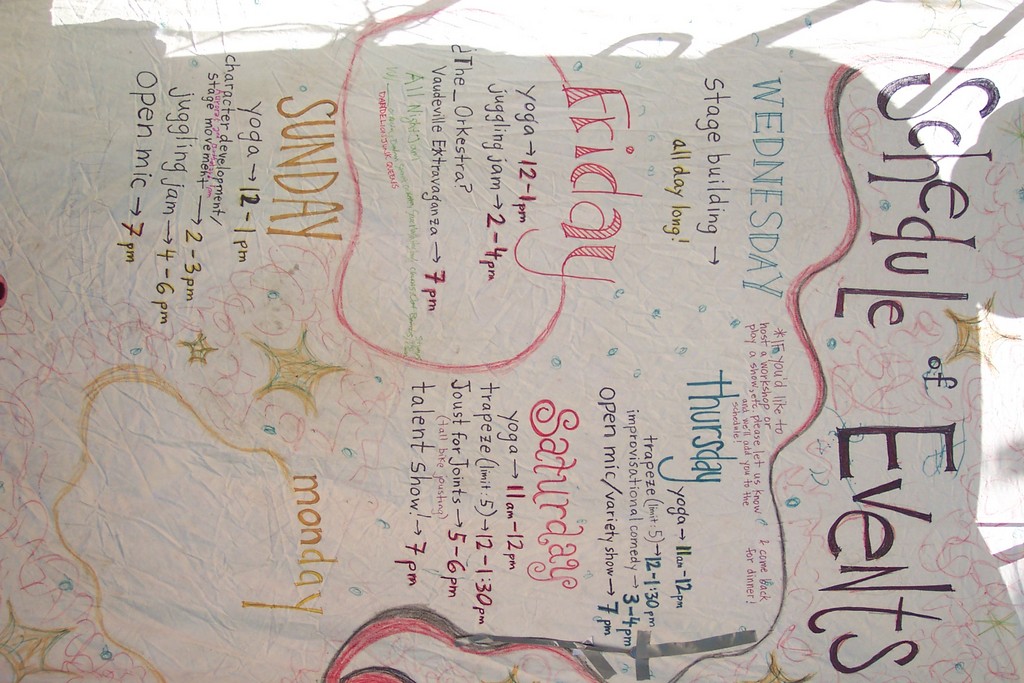 Schedule of Events
WEDNESDAY
Stage building →
all day long!
* If you'd like to
host a workshop or
play a show, etc. please let us know
and we'll add you to the
schedule!
& come back
for dinner!
thursday
yoga → 11am-12pm
trapeze (limit:5) → 12-1:30pm
improvisational comedy → 3-4pm
open mic/variety show → 7pm
Friday
yoga → 12-1pm
juggling jam → 2-4pm
¿The_Orkestra?
Vaudeville Extravaganza → 7pm
All Night
DANDELION JUNK QUEENS
Saturday
yoga → 11am-12pm
trapeze (limit:5) → 12-1:30pm
Joust for Joints → 5-6pm
(tall bike
talent show! → 7pm
SUNDAY
yoga → 12-1pm
character development/
stage movement → 2-3pm
juggling jam → 4-6pm
Open mic → 7pm
monday